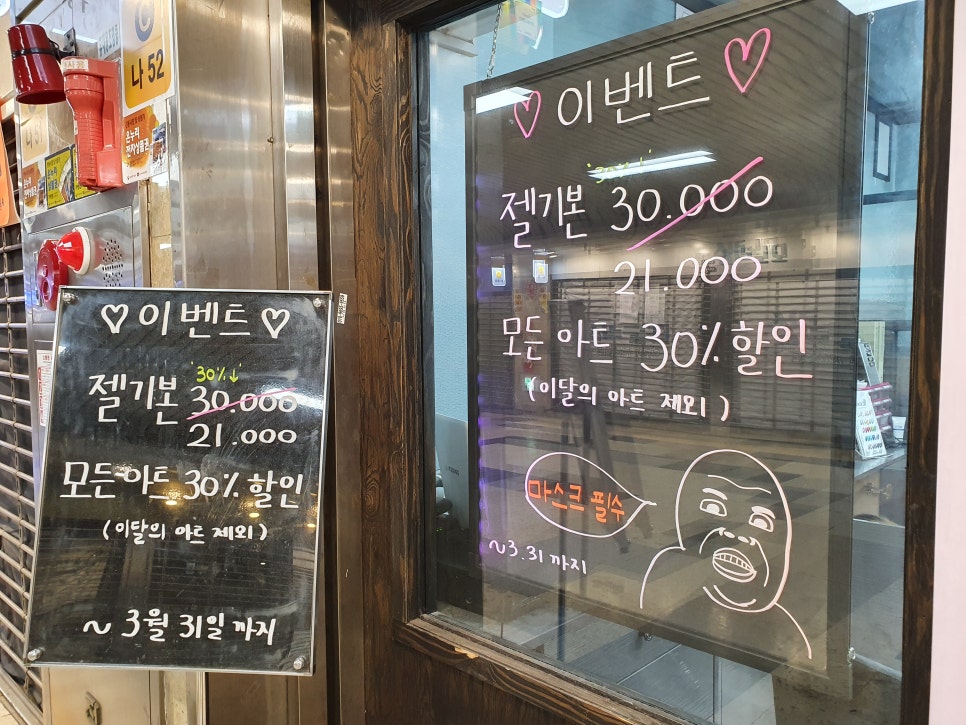 나 52
온누리
전자상품권
♡이벤트♡
30%↓
젤기본 30.000
21.000
모든 아트 30% 할인
(이달의 아트 제외)
~ 3월 31일 까지
♡이벤트♡
30%↓
젤기본 30.000
21.000
모든 아트 30% 할인
(이달의 아트 제외)
마스크 필수
~3.31 까지